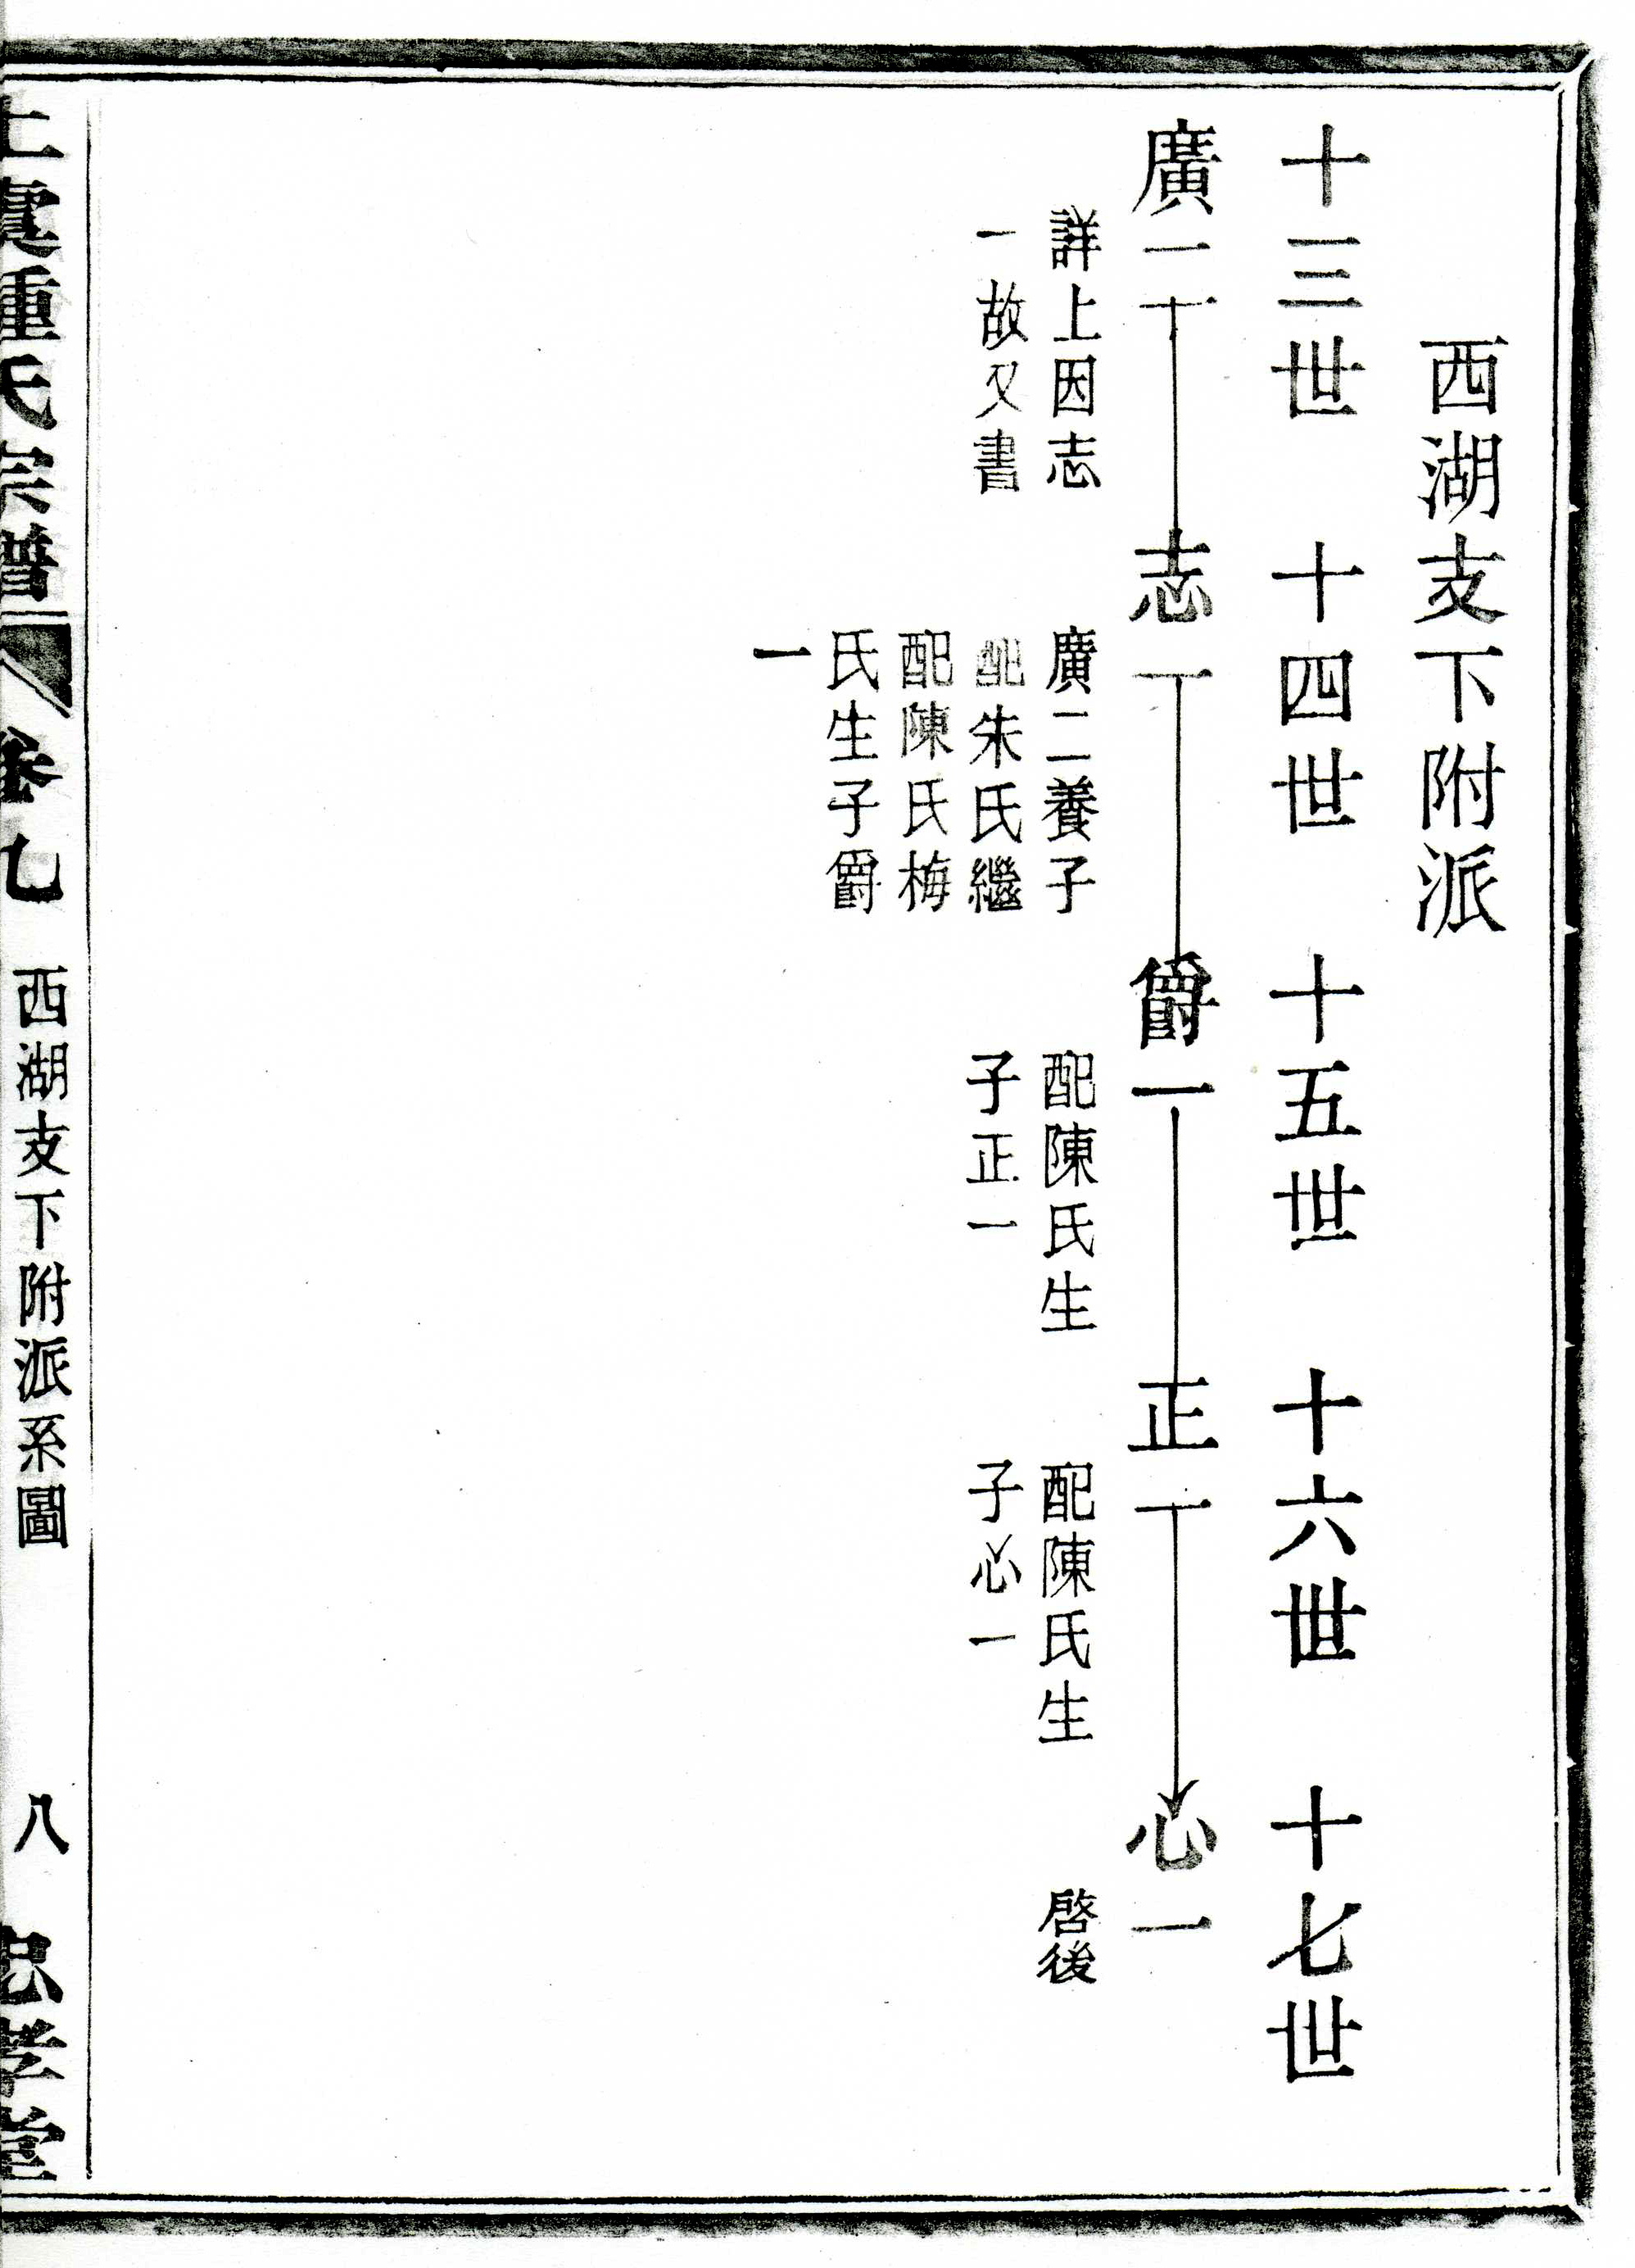 西湖支下附派
十三世 十四世 十五世 十六世 十七世
廣二 志一 爵一 正一 心一
詳上因志
一故又書
廣二養子
配朱氏繼
配陳氏梅
氏生子爵
一
配陳氏生
子正一
配陳氏生
子心一
啓後
上虞 氏宗譜 卷 西湖支下附派系圖 八 忠孝堂